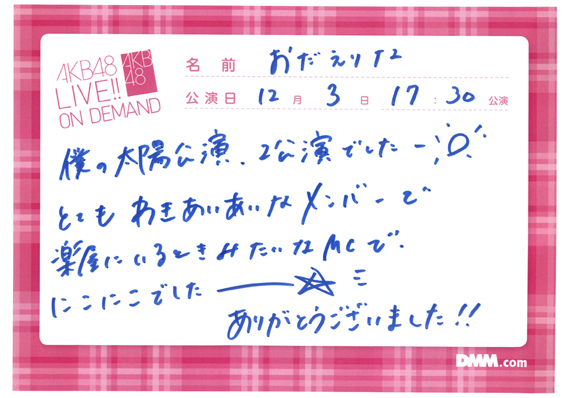 AKB48
LIVE!!
ON DEMAND
AKB
48
名前 おだえりな
公演日 12月3日 17:30公演
僕の太陽公演、2公演でしたー
とてもわきあいあいなメンバーで
楽屋にいるときみたいなMCで、
にこにこでした
ありがとうございました!!
DMM.com